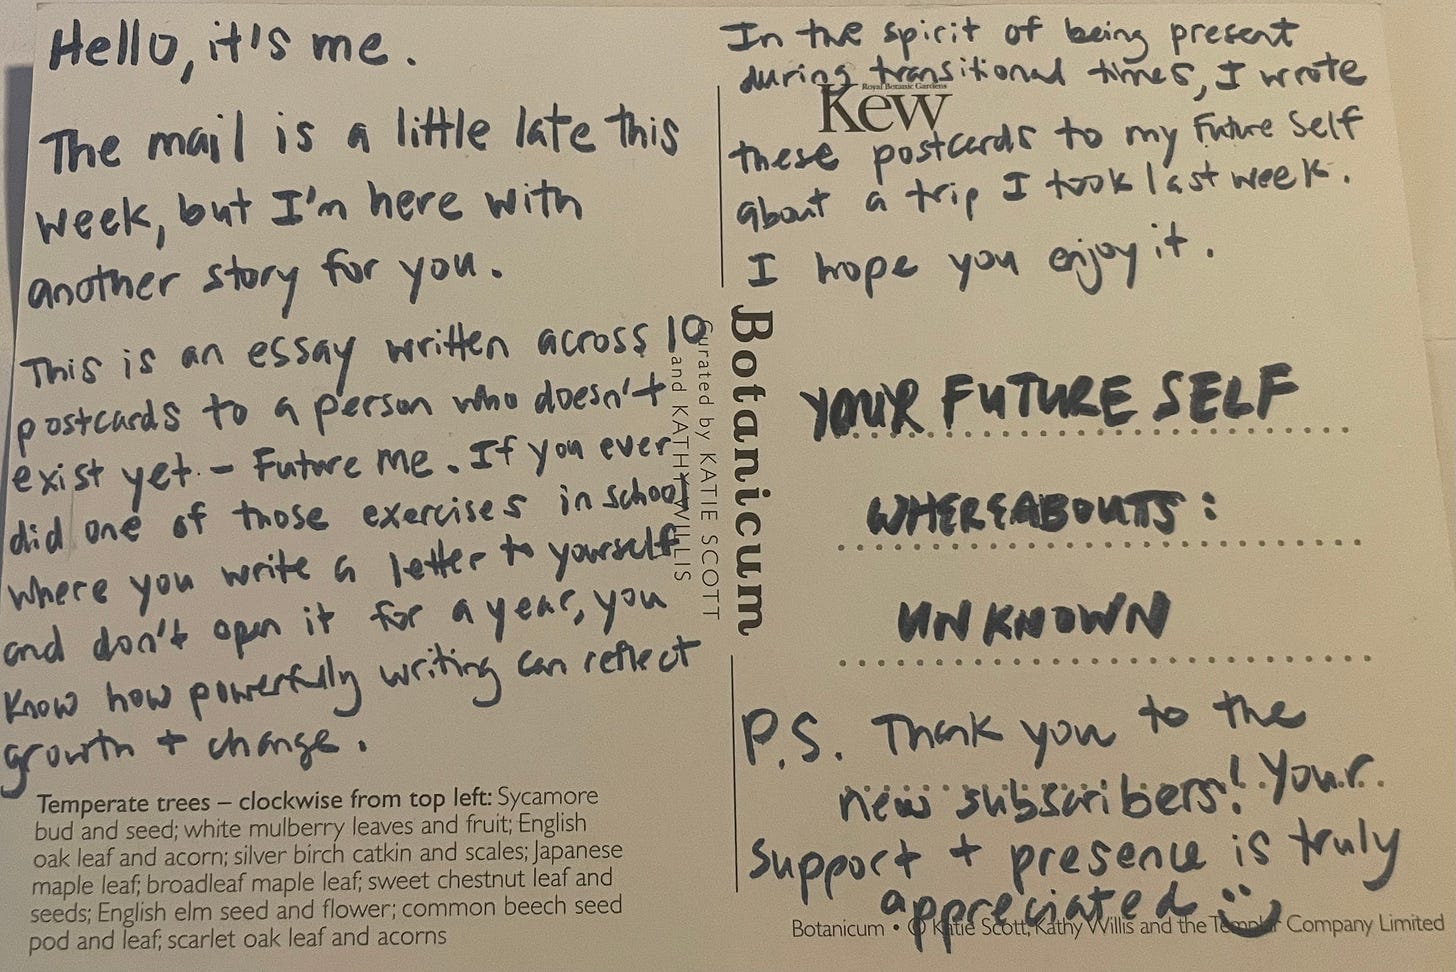 Hello, it's me.
The mail is a little late this
week, but I'm here with
another story for you.
This is an essay written across 10
postcards to a person who doesn't
exist yet - Future Me. If you ever
did one of those exercises in school
where you write a letter to yourself
and don't open it for a year, you
know how powerfully writing can reflect
growth + change.
Temperate trees – clockwise from top left: Sycamore
bud and seed; white mulberry leaves and fruit; English
oak leaf and acorn; silver birch catkin and scales; Japanese
maple leaf; broadleaf maple leaf; sweet chestnut leaf and
seeds; English elm seed and flower; common beech seed
pod and leaf; scarlet oak leaf and acorns
Botanicum
Curated by KATIE SCOTT
and KATHY WILLIS
In the spirit of being present
during transitional times, I wrote
Royal Botanic Gardens
Kew
these postcards to my Future Self
about a trip I took last week.
I hope you enjoy it.
YOUR FUTURE SELF
WHEREABOUTS:
UNKNOWN
P.S. Thank you to the
new subscribers! Your
support + presence is truly
appreciated :)
Botanicum • © Katie Scott, Kathy Willis and the Templar Company Limited